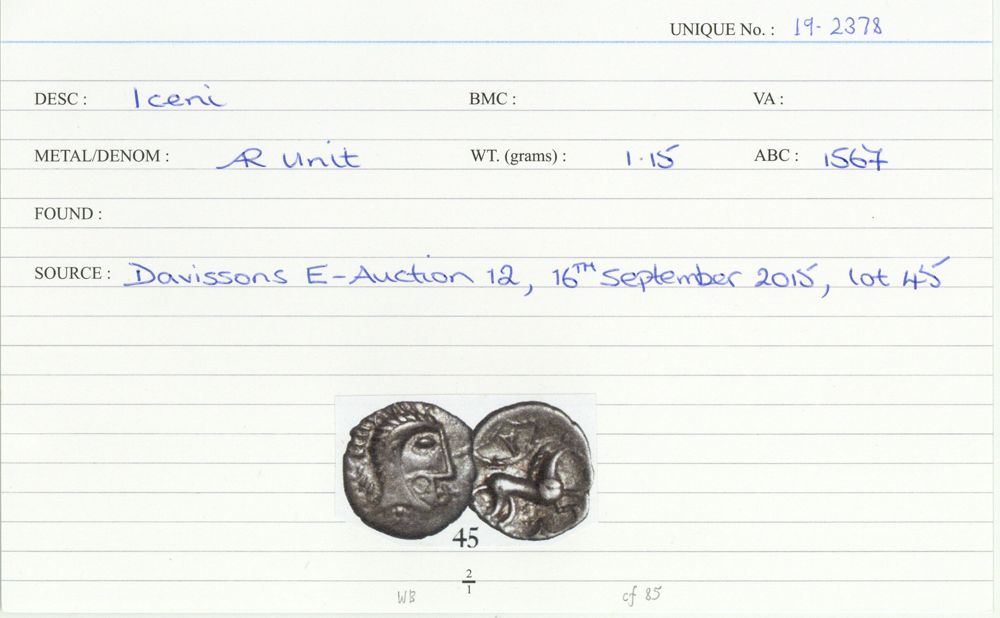 UNIQUE No. : 19-2378
DESC : Iceni BMC : VA :
METAL/DENOM : AR Unit WT. (grams) : 1.15 ABC : 1567
FOUND :
SOURCE : Davissons E-Auction 12, 16TH September 2015, lot 45
45
2/1
WB cf 85